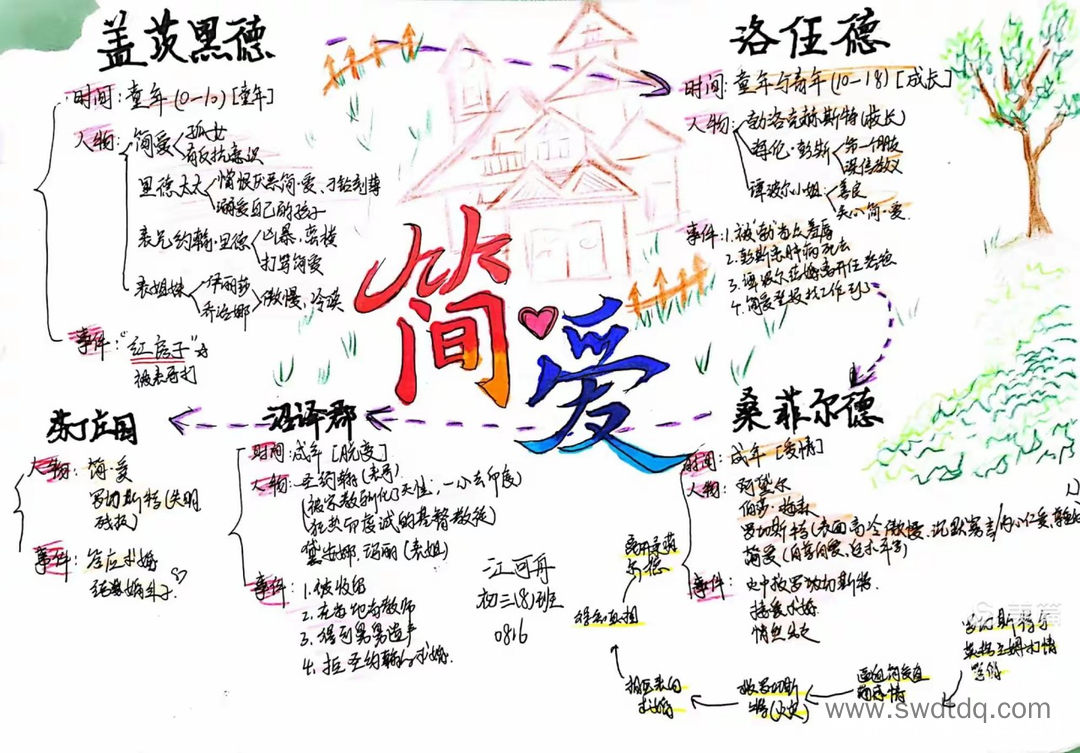 盖茨黑德
时间：童年(0—10)[童年]
人物：简爱
孤女
有反抗意识
里德太太
憎恨厌恶简·爱、刁钻刻薄
溺爱自己的孩子
表兄约翰·里德
凶暴、蛮横
打骂简爱
表姐妹
伊丽莎
乔治娜
傲慢、冷漠
事件："红房子"
被表哥打
洛伍德
时间：童年与青年(10—18)[成长]
人物：勃洛克赫斯特(校长)
海伦·彭斯
第一个朋友
谭波尔小姐
善良
关心简·爱
事件：1.被
2.彭斯患肺病死去
3.谭波尔
4.简爱登报找工作
简·爱
桑菲尔德
时间：成年[爱情]
人物：阿黛尔
伯莎·梅森
罗切斯特(表面高冷傲慢、沉默寡言/内心仁爱、
简爱(自尊自爱、追求平等)
事件：火中救罗切斯特
接受求婚
悄然出走
沼泽群
时间：成年[蜕变]
人物：圣约翰(表哥)
(被宗教异化了天性，一心去印度)
(狂热印度诚的基督教徒)
黛安娜、玛丽(表姐)
事件：1.被收留
2.在当地当教师
3.得到舅舅遗产
4.拒圣约翰的求婚
芬丁庄园
人物：简·爱
罗切斯特(失明
残疾)
事件：答应求婚
结婚生子
江可冉
初三(8)班
0816
离开桑菲
尔德
得知真相
相互表白
求婚
救罗切斯
特(火灾)
www.swdtdq.com